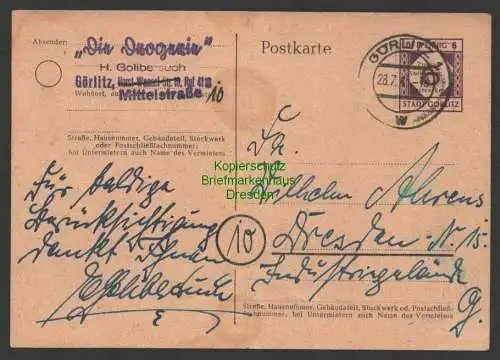 Absender:
„Die Drogerie"
H. Gollbersuch
Görlitz, Horst-Wessel-Str. 10, Ruf
Mittelstraße 10
Wohnort,
Straße, Hausnummer, Gebäudeteil, Stockwerk
oder Postschließfachnummer;
bei Untermietern auch Name des Vermieters
Für baldige
Berücksichtigung
dankt Ihnen
Postkarte
GÖRLITZ 1
28.7.
W
6
STADT GÖRLITZ
Kopierschutz
Briefmarkenhaus
Dresden
Fa.
Wilhelm Ahrens
10
Dresden-N. 15.
Industriegelände
G.
Straße, Hausnummer, Gebäudeteil, Stockwerk od. Postschließ-
fachnummer; bei Untermietern auch Name des Vermieters